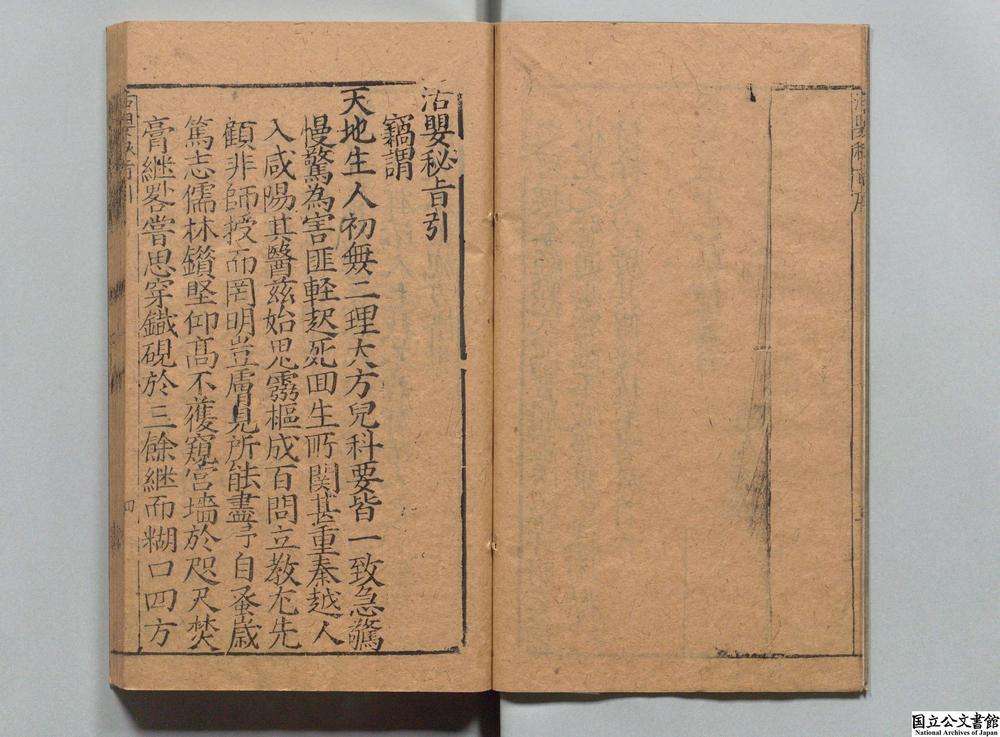 活嬰秘旨引
竊謂
天地生人初無二理大方兒科要皆一致急驚
慢驚為害匪軽起死回生所関甚重秦越人
入咸陽其醫茲始思靈樞成百問立教尤先
顧非師授而罔明豈膚見所能盡予自蚤歲
篤志儒林鑽堅仰高不獲窺宮墻於咫尺焚
膏継晷嘗思穿鐵硯於三餘継而糊口四方
四
国立公文書館
National Archives of Japan